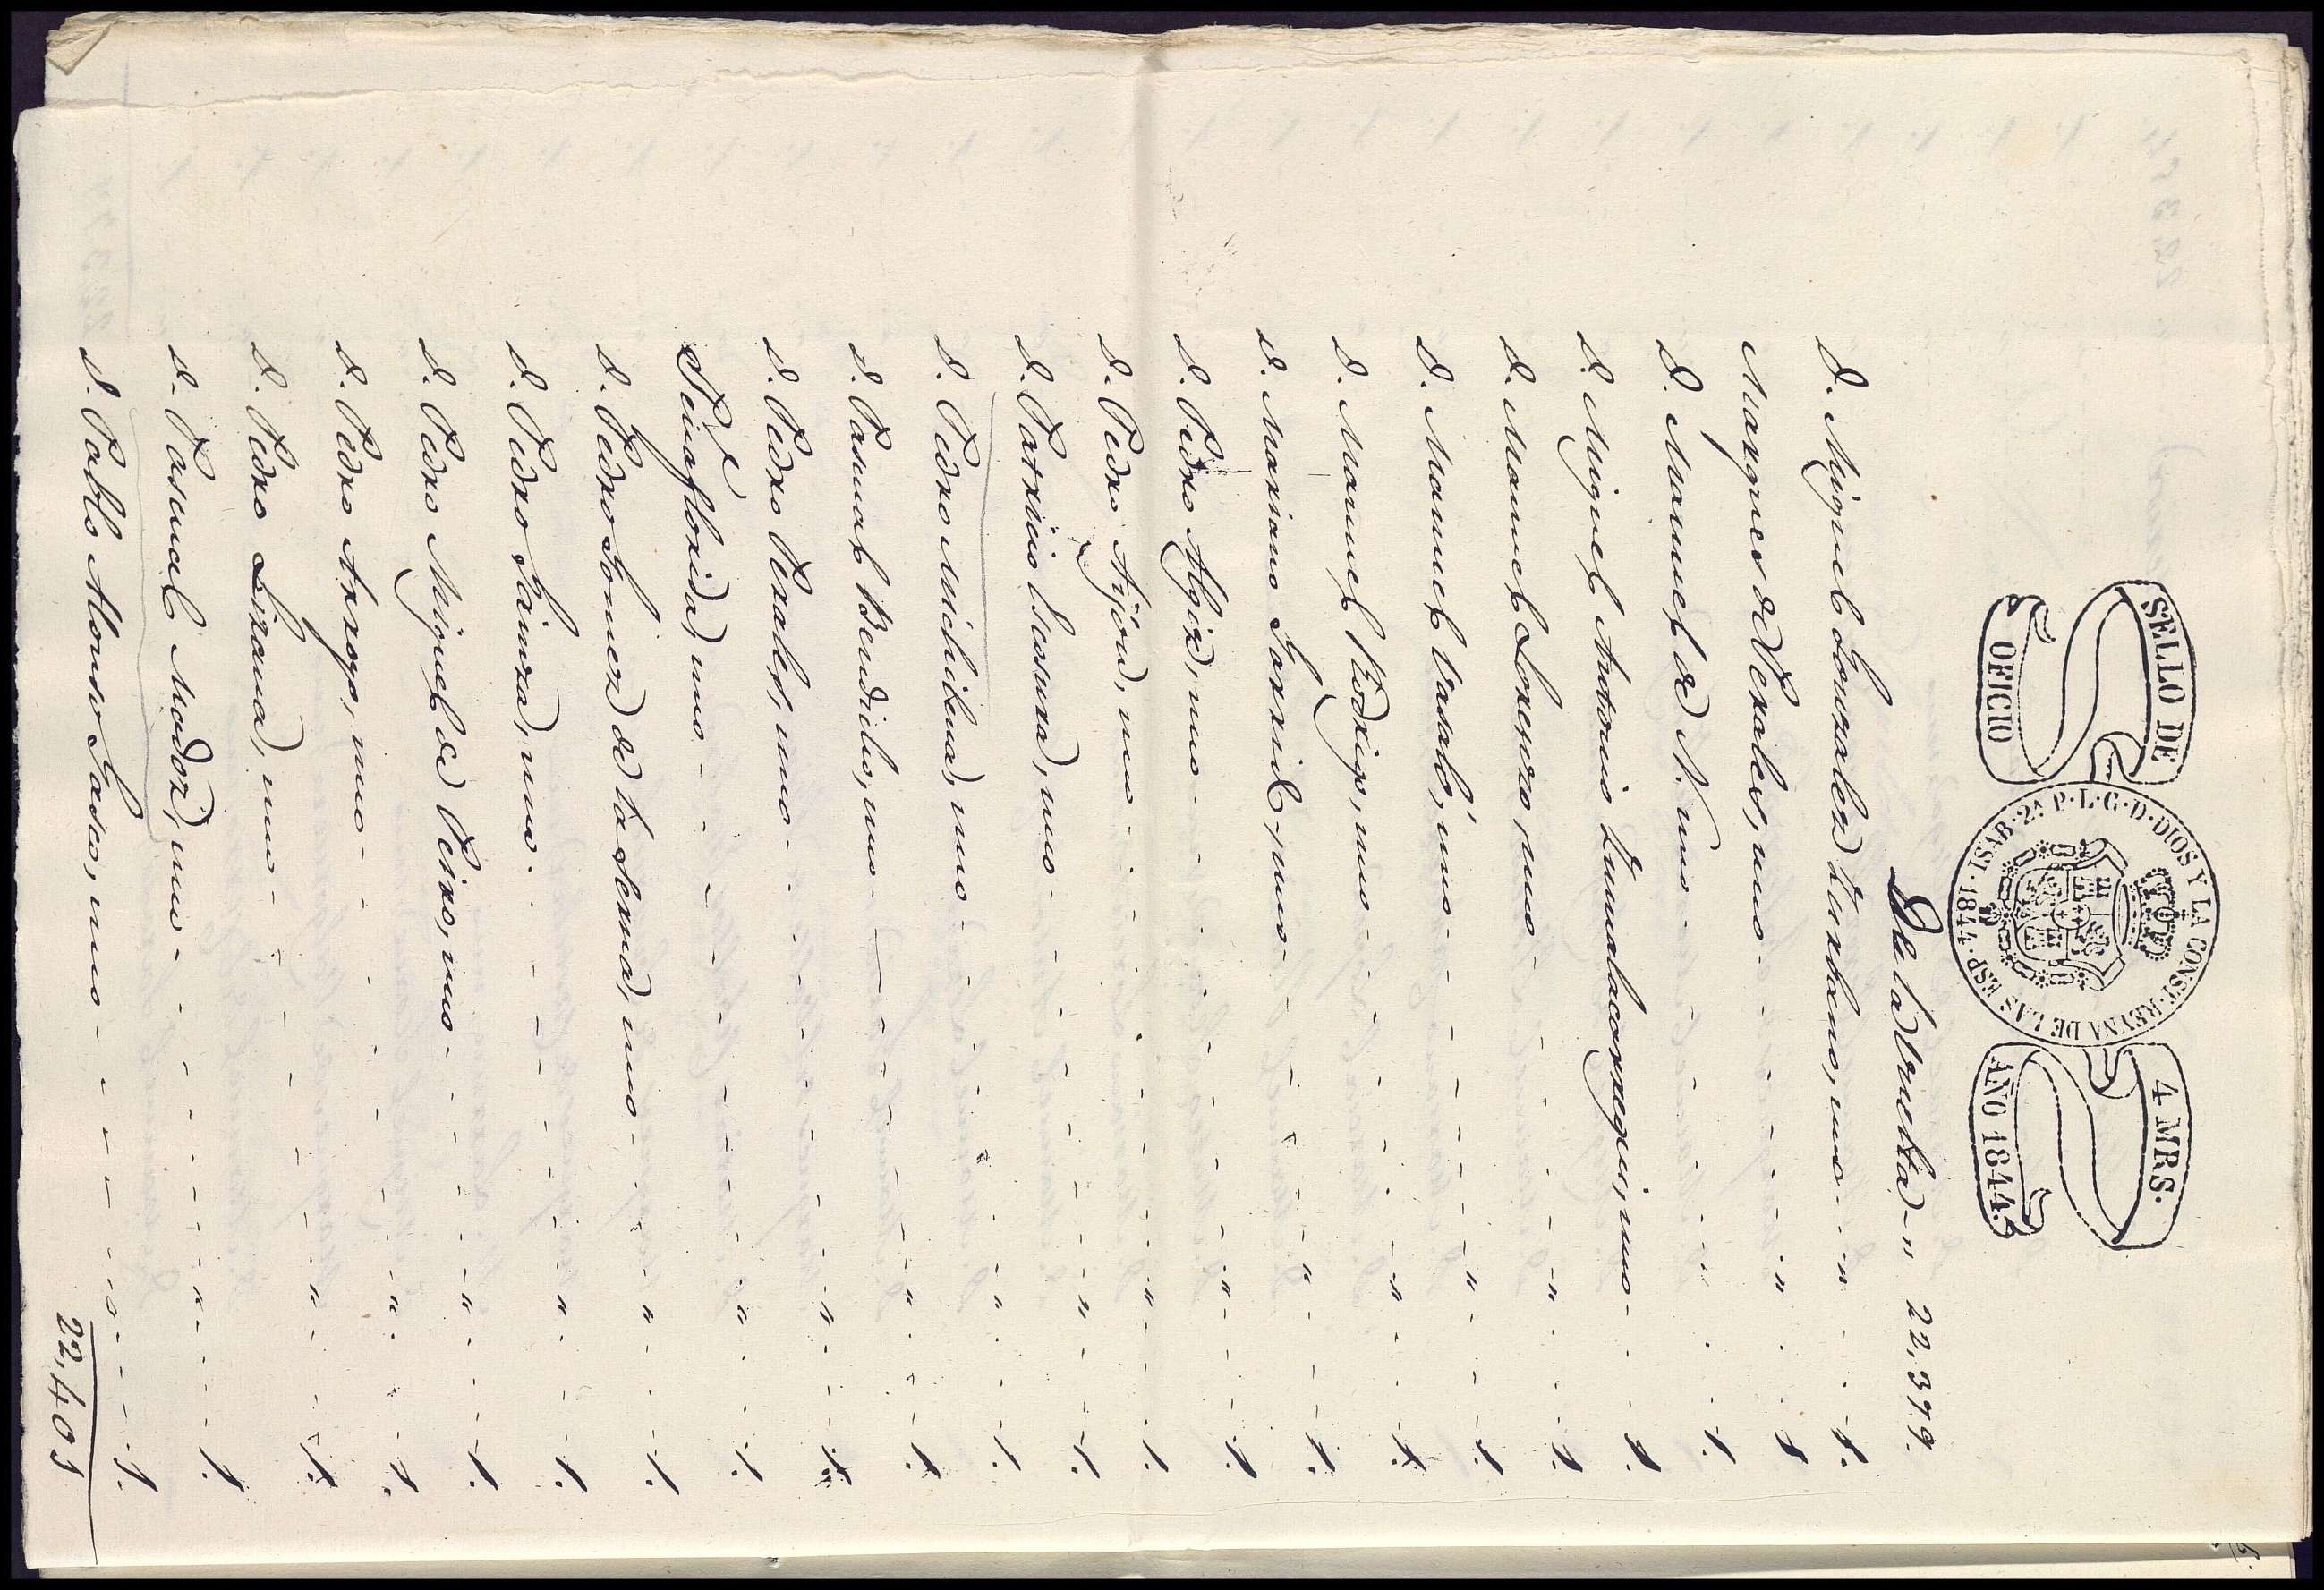 SELLO DE OFICIO
ISAB. 2ª P. L. G. D. DIOS Y LA CONST. REYNA DE LAS ESP. 1844.
4 MRS. AÑO 1844.
De la vuelta - " 22,379.
D. Miguel Gonzalez Zurbano, uno - - " - - 1.
Marques de Perales, uno - - - " - - 1
D. Manuel de N. uno - - - - 1.
D. Miguel Antonio Zumalacarregui, uno - - 1.
D. Manuel Lorenzo, uno - - - " - - 1.
D. Manuel Varaló, uno - - - " - - 1.
D. Manuel Rodrigo, uno - - - " - - 1.
D. Mariano Garril, uno - - - " - - 1.
D. Pedro Algix, uno - - - " - - 1.
D. Pedro Nijon, uno - - - " - - 1.
D. Patricio uno - - - " - - 1.
D. Pedro Michilena, uno - - - " - - 1.
D. Pascual Bendicho, uno - - - " - - 1.
D. Pedro Perales, uno - - - " - - 1.
Peñaflorida, uno - - - " - - 1.
D. Pedro Gomez de la Serna, uno - - " - - 1.
D. Pedro Gainza, uno - - - " - - 1.
D. Pedro Miguel de Peiro, uno - - - " - - 1.
D. Pedro uno - - - " - - 1.
D. Pedro Lizana, uno - - - " - - 1.
D. Pascual Madoz, uno - - - " - - 1.
D. Pablo Alonso Gasco, uno - - - " - - 1.
22,405